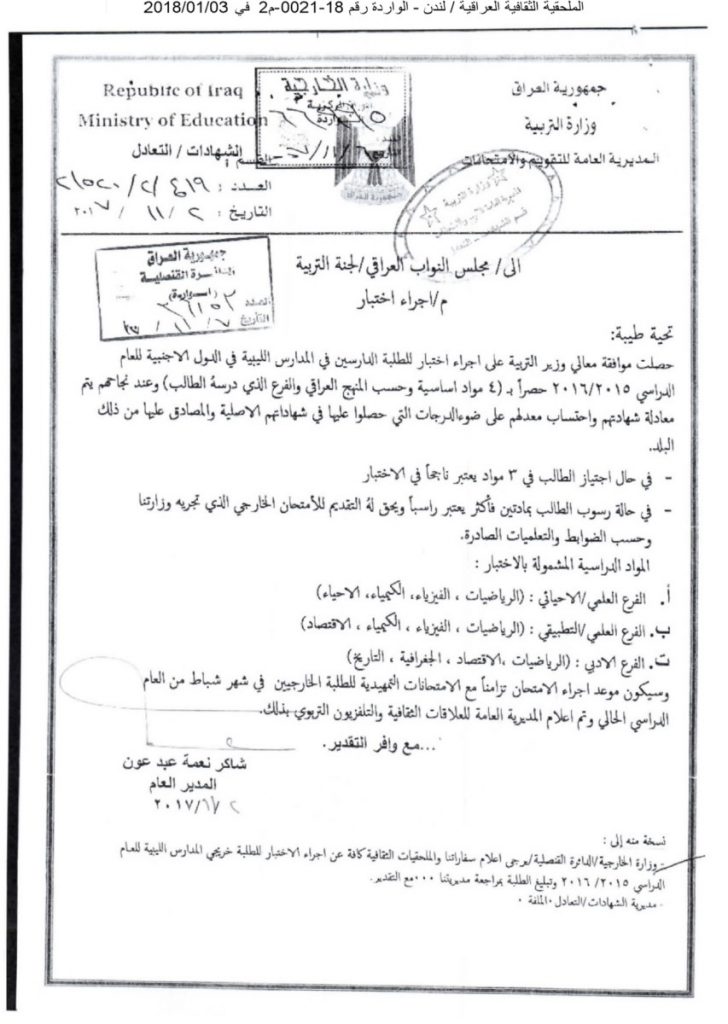 الملحقية الثقافية العراقية / لندن - الواردة رقم 18-0021-م2 في 2018/01/03
Republic of Iraq
Ministry of Education
الشهادات / التعادل
القسم :
العدد : ٢١٥٢٠/٢/٤١٩
التاريخ : ٢ / ١١ / ٢٠١٧
وزارة الخارجية
جمهورية العراق
وزارة التربية
المديرية العامة للتقويم والامتحانات
وزارة التربية
جمهورية العراق
الدائرة القنصلية
(الواردة)
العدد
التاريخ
الى/ مجلس النواب العراقي/لجنة التربية
م/اجراء اختبار
تحية طيبة:
حصلت موافقة معالي وزير التربية على اجراء اختبار للطلبة الدارسين في المدارس الليبية في الدول الاجنبية للعام
الدراسي ٢٠١٦/٢٠١٥ حصراً بـ (٤ مواد اساسية وحسب المنهج العراقي والفرع الذي درسهُ الطالب) وعند نجاحهم يتم
معادلة شهادتهم واحتساب معدلهم على ضوءالدرجات التي حصلوا عليها في شهاداتهم الاصلية والمصادق عليها من ذلك
البلد.
- في حال اجتياز الطالب في ٣ مواد يعتبر ناجحاً في الاختبار
- في حالة رسوب الطالب بمادتين فأكثر يعتبر راسباً ويحق لهُ التقديم للأمتحان الخارجي الذي تجريه وزارتنا
وحسب الضوابط والتعلميات الصادرة.
المواد الدراسية المشمولة بالاختبار :
أ. الفرع العلمي/الاحيائي : (الرياضيات ، الفيزياء، الكيمياء، الاحياء)
ب. الفرع العلمي/التطبيقي : (الرياضيات ، الفيزياء ، الكيمياء ، الاقتصاد)
ت. الفرع الادبي : (الرياضيات ،الاقتصاد ، الجغرافية ، التاريخ)
وسيكون موعد اجراء الامتحان تزامناً مع الامتحانات التمهيدية للطلبة الخارجيين في شهر شباط من العام
الدراسي الحالي وتم اعلام المديرية العامة للعلاقات الثقافية والتلفزيون التربوي بذلك.
...مع وافر التقدير.
شاكر نعمة عبد عون
المدير العام
نسخة منه إلى :
- وزارة الخارجية/الدائرة القنصلية/يرجى اعلام سفاراتنا والملحقيات الثقافية كافة عن اجراء الاختبار للطلبة خريجي المدارس الليبية للعام
الدراسي ٢٠١٥/ ٢٠١٦ وتبليغ الطلبة بمراجعة مديريتنا ٠٠٠مع التقدير.
- مديرية الشهادات/التعادل٠الملفة ٠